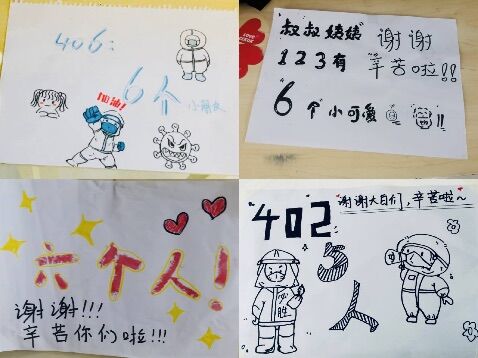 406:
6个
小朋友
加油!
叔叔姨姨 谢谢
123有 辛苦啦!!
6个小可爱 !!
六个人!
谢谢!!!
辛苦你们啦!!!
402
谢谢大白们,辛苦啦~
5
人
必胜